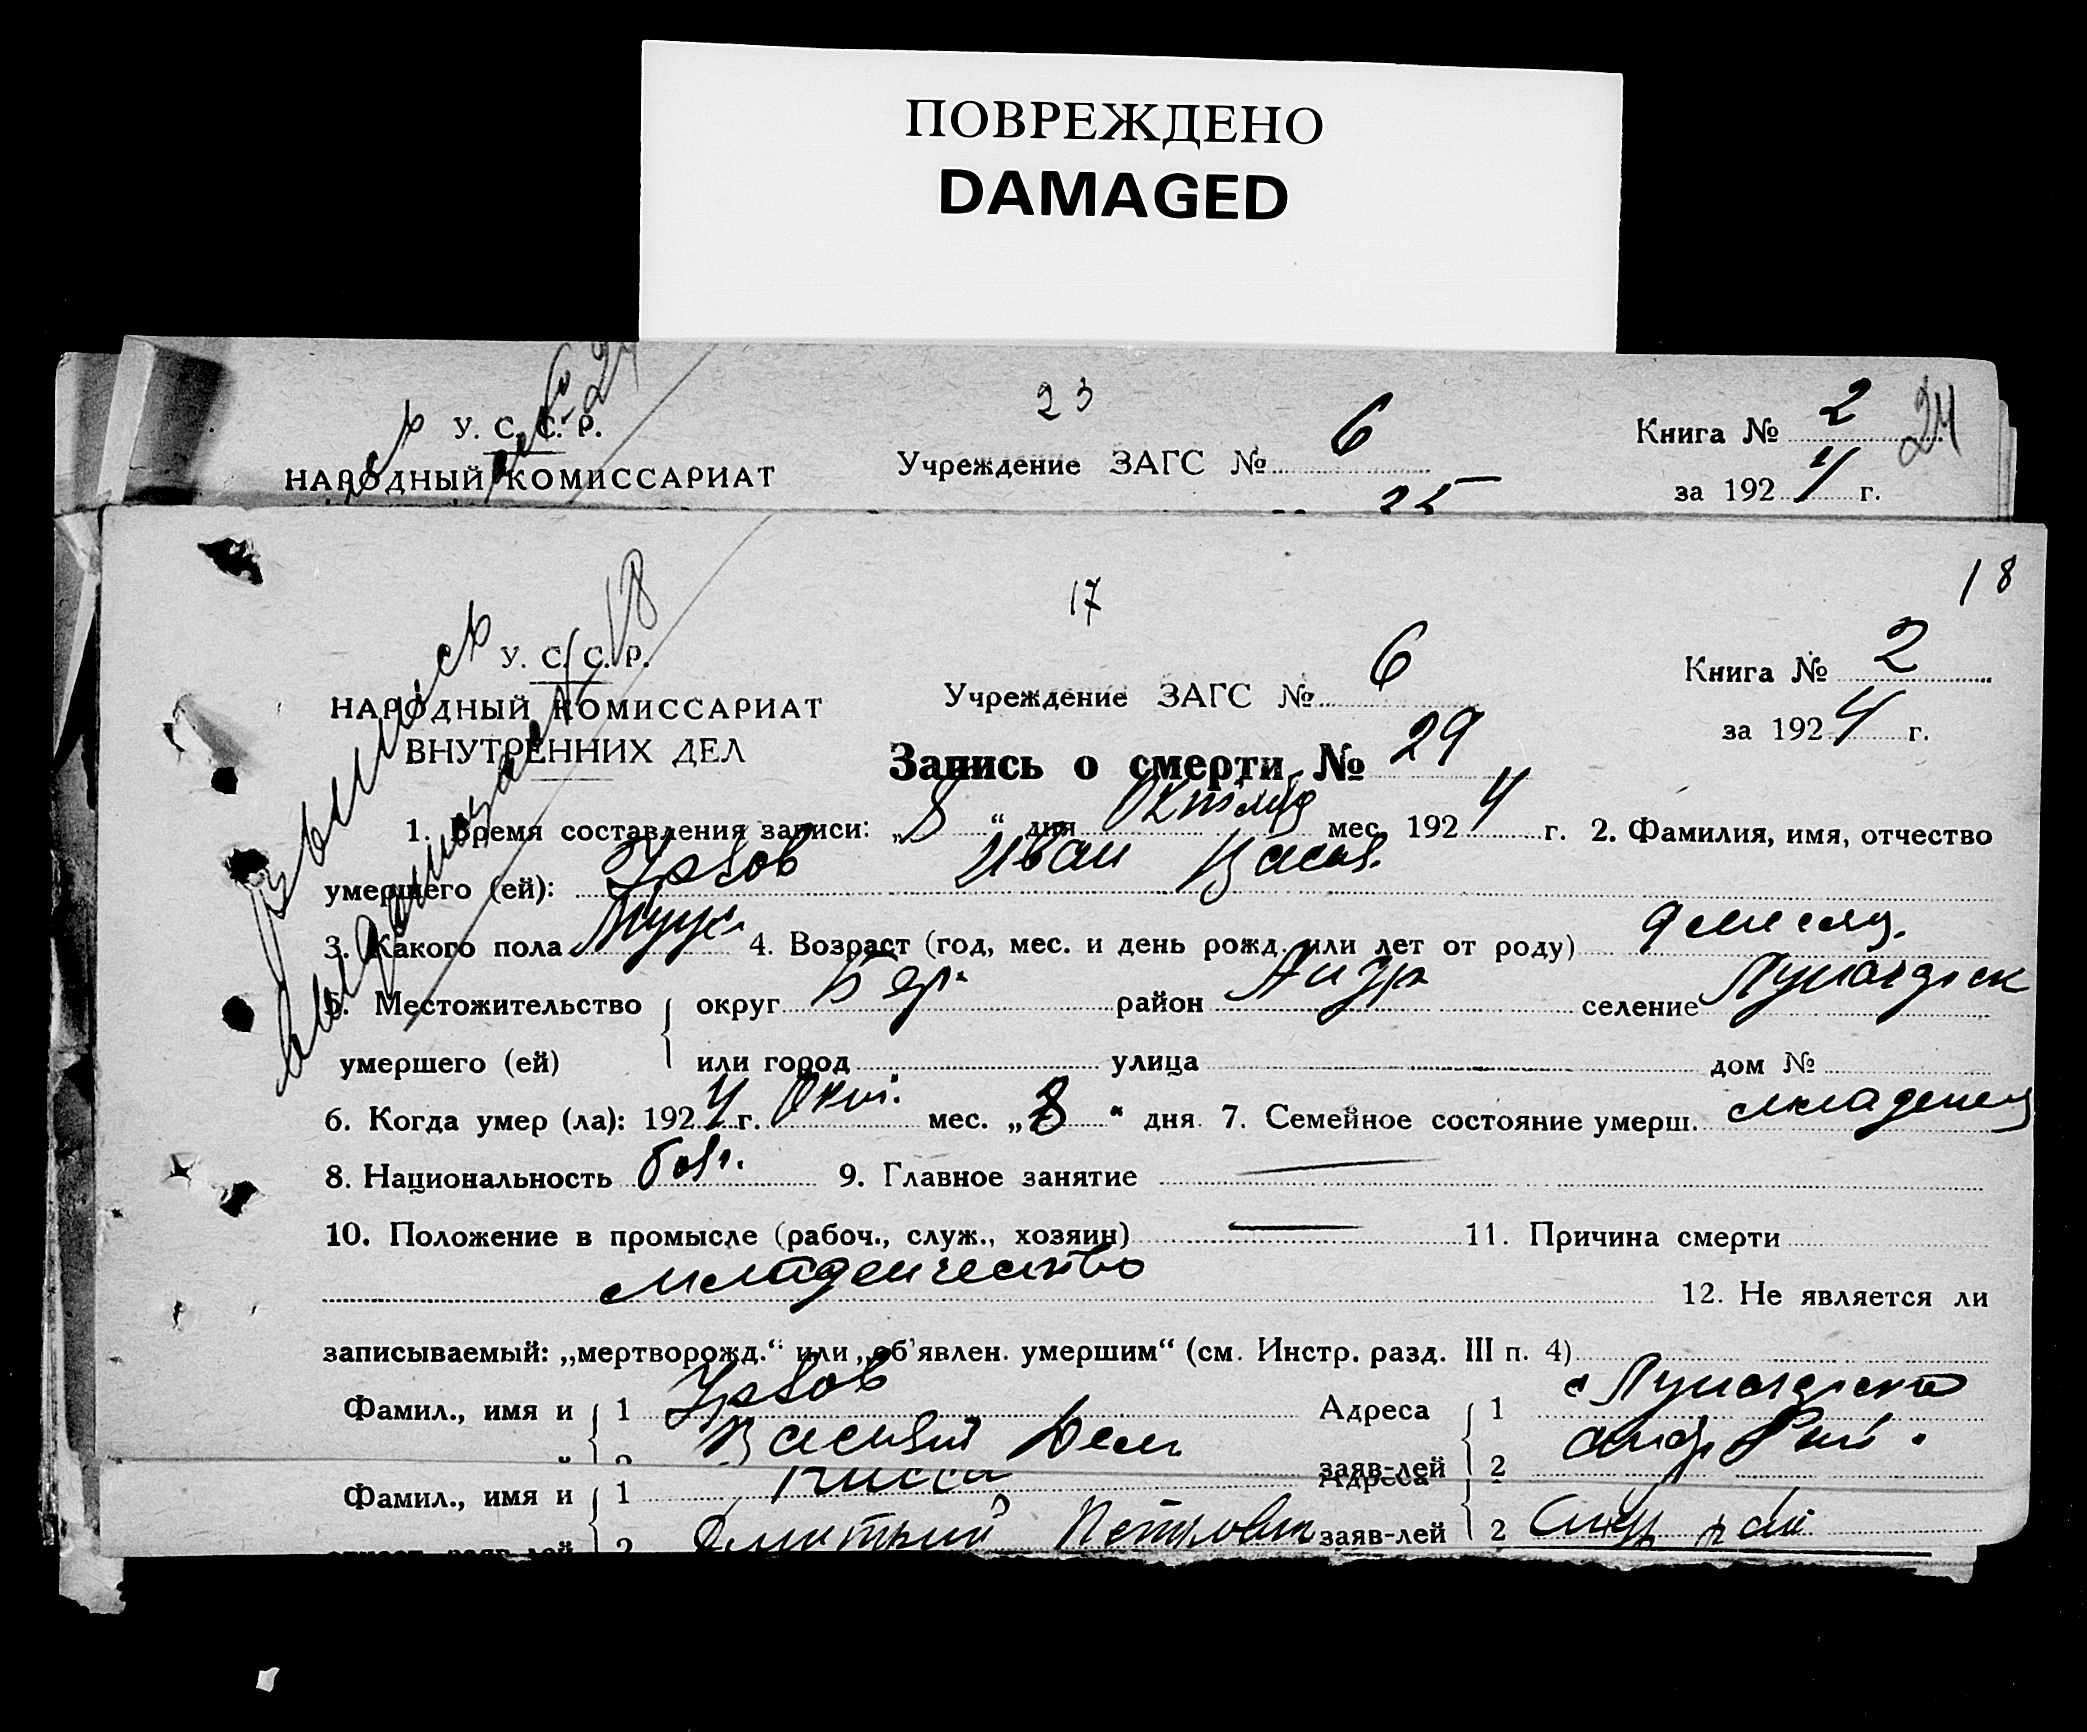 ПОВРЕЖДЕНО
DAMAGED
23
У. С. С. Р.
Учреждение ЗАГС № 6
Книга № 2 24
НАРОДНЫЙ КОМИССАРИАТ
за 1924 г.
25
18
17
Выпись
выдана 18
У. С. С. Р.
Учреждение ЗАГС № 6
Книга № 2
НАРОДНЫЙ КОМИССАРИАТ
ВНУТРЕННИХ ДЕЛ
за 1924 г.
Запись о смерти № 29
1. Время составления записи: „8“ дня Октября мес. 1924 г. 2. Фамилия, имя, отчество
умершего (ей): Иван Васил.
3. Какого пола Муж. 4. Возраст (год, мес. и день рожд. или лет от роду) 9 месяц.
5. Местожительство округ район селение
умершего (ей) или город улица дом №
6. Когда умер (ла): 1924 г. Окт. мес. „8“ дня. 7. Семейное состояние умерш. младенец
8. Национальность болг. 9. Главное занятие —
10. Положение в промысле (рабоч., служ., хозяин) — 11. Причина смерти
младенчество
12. Не является ли
записываемый: „мертворожд.“ или „об'явлен. умершим“ (см. Инстр. разд. III п. 4)
Фамил., имя и 1 Адреса 1
Василий 2 заяв-лей 2
Фамил., имя и 1 Адреса
2 Дмитрий Петрович заяв-лей 2